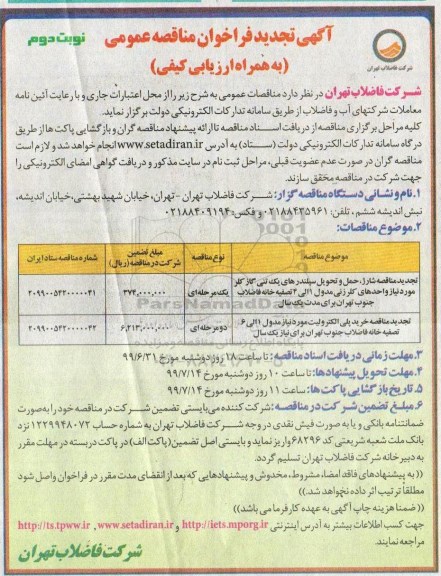 آگهی تجدید فراخوان مناقصه عمومی
نوبت دوم
(به همراه ارزیابی کیفی)
شرکت فاضلاب تهران
شرکت فاضلاب تهران در نظر دارد مناقصات عمومی به شرح زیر را از محل اعتبارات جاری و با رعایت آئین نامه
معاملات شرکتهای آب و فاضلاب از طریق سامانه تدارکات الکترونیکی دولت برگزار نماید.
کلیه مراحل برگزاری مناقصه از دریافت اسناد مناقصه تا ارائه پیشنهاد مناقصه گران و بازگشایی پاکت ها از طریق
درگاه سامانه تدارکات الکترونیکی دولت (ستاد) به آدرس www.setadiran.ir انجام خواهد شد و لازم است
مناقصه گران در صورت عدم عضویت قبلی، مراحل ثبت نام در سایت مذکور و دریافت گواهی امضای الکترونیکی را
جهت شرکت در مناقصه محقق سازند.
۱. نام و نشانی دستگاه مناقصه گزار: شرکت فاضلاب تهران - تهران، خیابان شهید بهشتی، خیابان اندیشه،
نبش اندیشه ششم، تلفن: ۰۲۱۸۸۴۳۵۹۶۱ و فکس: ۰۲۱۸۸۴۰۹۱۹۴
۲. موضوع مناقصات:
موضوع مناقصه
نوع مناقصه
مبلغ تضمین شرکت در مناقصه (ریال)
شماره مناقصه ستاد ایران
تجدید مناقصه شارژ، حمل و تحویل سیلندرهای یک تنی گاز کلر
مورد نیاز واحدهای کلرزنی مدول ۱ الی ۴ تصفیه خانه فاضلاب
جنوب تهران برای مدت یک سال
یک مرحله ای
۳۷۴,۰۰۰,۰۰۰
۲۰۹۹۰۰۵۴۲۰۰۰۰۰۴۱
تجدید مناقصه خرید پلی الکترولیت مورد نیاز مدول ۱ الی ۶
تصفیه خانه فاضلاب جنوب تهران برای نیاز یک سال
دو مرحله ای
۶,۲۱۳,۰۰۰,۰۰۰
۲۰۹۹۰۰۵۴۲۰۰۰۰۰۴۲
۳. مهلت زمانی دریافت اسناد مناقصه: تا ساعت ۱۸ روز دوشنبه مورخ ۹۹/۶/۳۱
۴. مهلت تحویل پیشنهادها: تا ساعت ۱۰ روز دوشنبه مورخ ۹۹/۷/۱۴
۵. تاریخ بازگشایی پاکت ها: تا ساعت ۱۱ روز دوشنبه مورخ ۹۹/۷/۱۴
۶. مبلغ تضمین شرکت در مناقصه: شرکت کننده می بایستی تضمین شرکت در مناقصه خود را به صورت
ضمانتنامه بانکی و یا به صورت فیش نقدی در وجه شرکت فاضلاب تهران به شماره حساب ۱۲۲۹۹۴۸۰۷۲ نزد
بانک ملت شعبه شریعتی کد ۶۸۲۹۶ واریز نماید و بایستی اصل تضمین (پاکت الف) در پاکت دربسته در مهلت مقرر
به دبیرخانه شرکت فاضلاب تهران تسلیم گردد.
(( به پیشنهادهای فاقد امضا، مشروط، مخدوش و پیشنهادهایی که بعد از انقضای مدت مقرر در فراخوان واصل شود
مطلقاً ترتیب اثر داده نخواهد شد.))
(( ضمناً هزینه چاپ آگهی به عهده کارفرما می باشد))
جهت کسب اطلاعات بیشتر به آدرس اینترنتی http://iets.mporg.ir و www.setadiran.ir ، http://ts.tpww.ir
مراجعه نمایند.
شرکت فاضلاب تهران